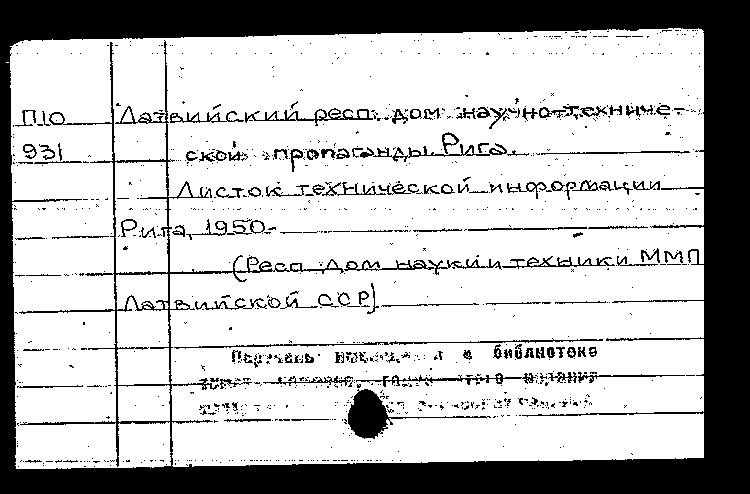 П10 Латвийский респ. дом научно-техниче-
931 ской пропаганды. Рига.
Листок технической информации
Рига, 1950-
(Респ. дом науки и техники ММП
Латвийской ССР)
Перечень в библиотеке
издания